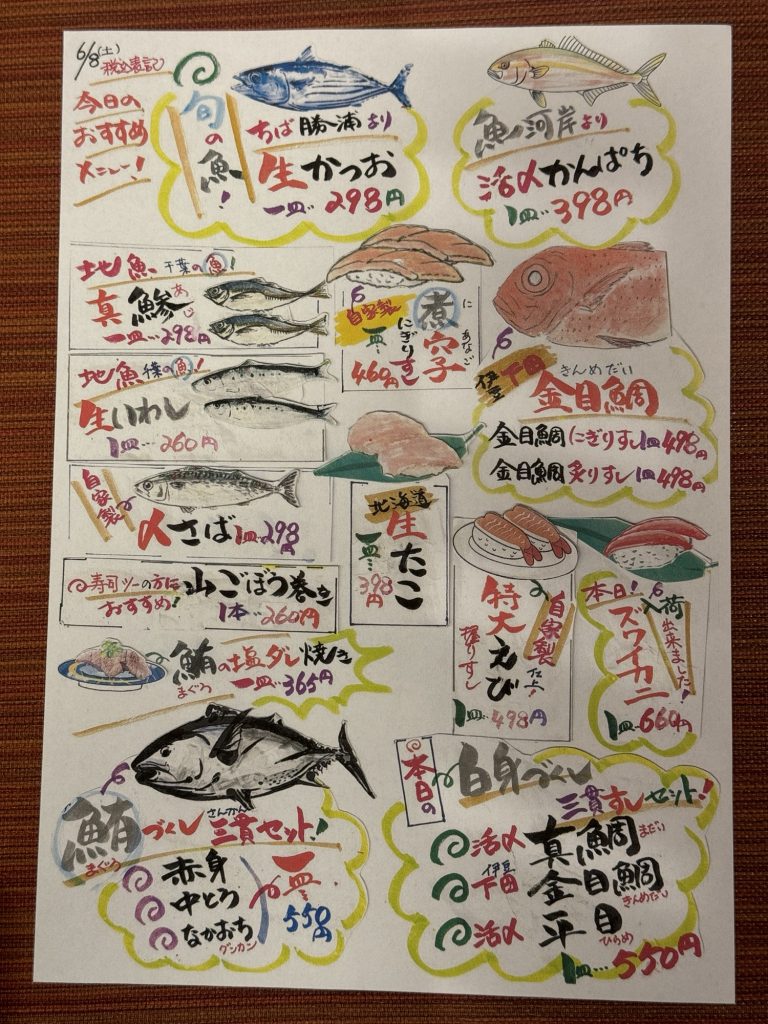 6/8(土)
税込表記
今日の
おすすめ
メニュー!
旬の魚!
ちば勝浦より
生かつお
一皿…298円
魚河岸より
活〆かんぱち
1皿…398円
地魚 千葉の魚!
真鯵 あじ
一皿…298円
自家製
煮穴子
に あなご
にぎりすし
一皿…460円
伊豆下田
きんめだい
金目鯛
金目鯛にぎりすし1皿498円
金目鯛炙りすし1皿498円
地魚 千葉の魚!
生いわし
1皿…260円
自家製
〆さば1皿…298円
北海道
生たこ
一皿…398円
寿司ツーの方に
おすすめ!
山ごぼう巻き
1本…260円
自家製仕上げ
特大えび
握りすし
1皿…498円
本日!
入荷出来ました!
ズワイカニ
1皿…660円
鮪の塩ダレ焼き
まぐろ
一皿…365円
鮪づくし三貫セット!
まぐろ
さんかん
赤身
中とろ
なかおち
グンカン
一皿…550円
本日の
白身づくし
三貫すしセット!
活〆 真鯛 まだい
伊豆下田 金目鯛 きんめだい
活〆 平目 ひらめ
1皿…550円